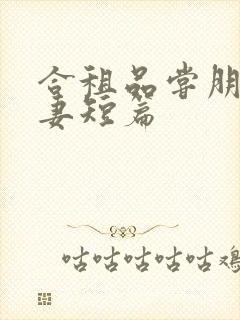 合租品尝朋
妻短篇
咕咕咕咕咕鸡